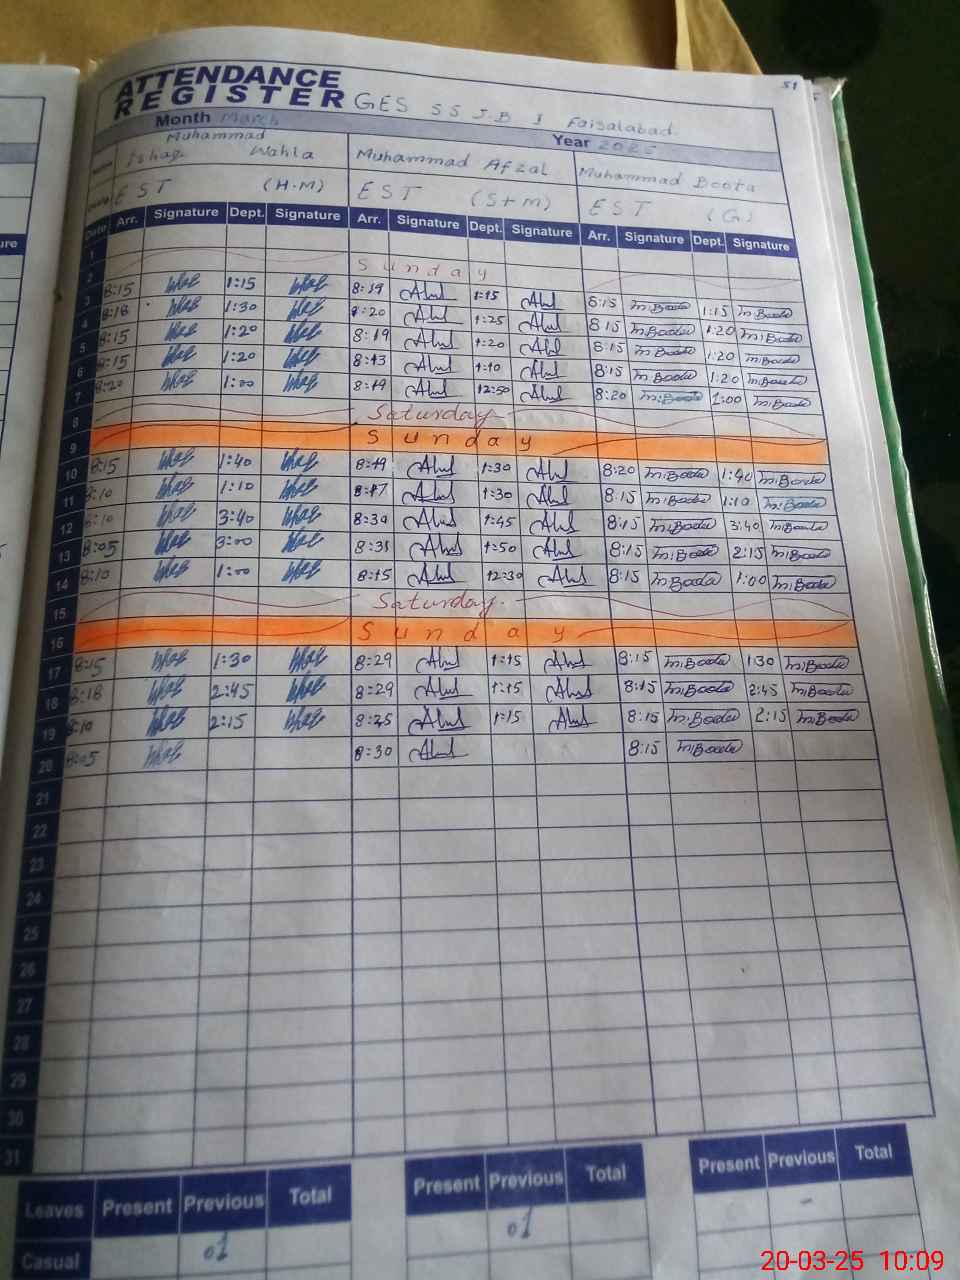 51
ATTENDANCE
REGISTER GES SS J.B I Faisalabad.
Month March Year 2025
Muhammad
Ishaq Wahla Muhammad Afzal Muhammad Boota
EST (H.M) EST (S+M) EST (G)
Date Arr. Signature Dept. Signature Arr. Signature Dept. Signature Arr. Signature Dept. Signature
1
2 Sunday
3 8:15 1:15 8:19 1:15 8:15 M.Boota 1:15 M.Boota
4 8:18 1:30 1:25 8:15 M.Boota 1:20 M.Boota
5 8:15 1:20 8:19 1:20 8:15 M.Boota 1:20 M.Boota
6 8:15 1:20 8:13 1:10 8:15 M.Boota 1:20 M.Boota
7 8:20 1:00 8:19 12:50 8:20 M.Boota 1:00 M.Boota
8 Saturday
9 Sunday
10 8:15 1:40 8:19 1:30 8:20 M.Boota 1:40 M.Boota
11 8:10 1:10 8:17 1:30 8:15 M.Boota 1:10 M.Boota
12 8:10 3:40 8:30 1:45 8:15 M.Boota 3:40 M.Boota
13 8:05 3:00 8:31 1:50 8:15 M.Boota 2:15 M.Boota
14 8:10 1:00 8:15 12:30 8:15 M.Boota 1:00 M.Boota
15 Saturday.
16 Sunday
17 8:15 1:30 8:29 1:15 8:15 M.Boota 1:30 M.Boota
18 8:18 2:45 8:29 1:15 8:15 M.Boota 2:45 M.Boota
19 8:10 2:15 8:25 1:15 8:15 M.Boota 2:15 M.Boota
20 8:05 8:30 8:15 M.Boota
21
22
23
24
25
26
27
28
29
30
31
Leaves Present Previous Total Present Previous Total Present Previous Total
Casual 01 01 -
20-03-25 10:09